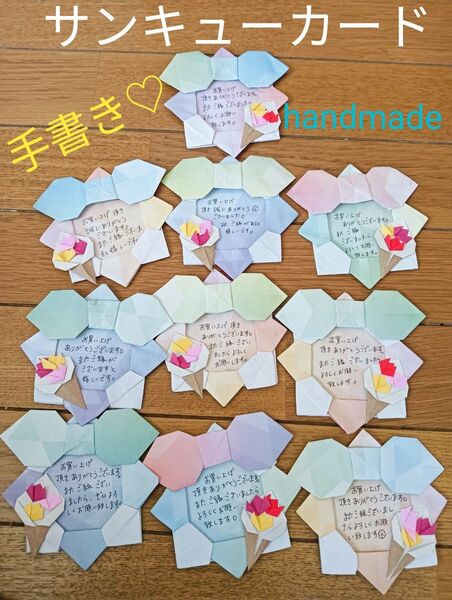 サンキューカード
手書き♡
handmade
お買い上げ
頂きありがとうございます。
またご縁ございましたら
よろしくお願い
致します。
お買い上げ頂き
誠にありがとう
ございます。
またご縁ございま
お買い上げ
頂き誠にありがとう
ございました。
またご縁があると
嬉しいです。
お買い上げ
ありがとうございます。
またご縁
ございましたら
よろしくお願い
致します。
お買い上げ
ありがとうございます。
またご縁が
ございますと
嬉しいです。
お買い上げ頂き
ありがとうございます。
またご縁ござい
ましたらよろしく
お願いします。
お買い上げ
頂きありがとうございます。
またご縁ございましたら
よろしくお願い
致します。
お買い上げ
頂きありがとうございます。
またご縁ござい
ましたら、ぜひよろ
しくお願い致します。
お買い上げ
頂きありがとうございます。
またご縁ございましたら
よろしくお願い
致します。
お買い上げ
頂きありがとうございます。
またご縁ございまし
たらよろしくお願
い致します